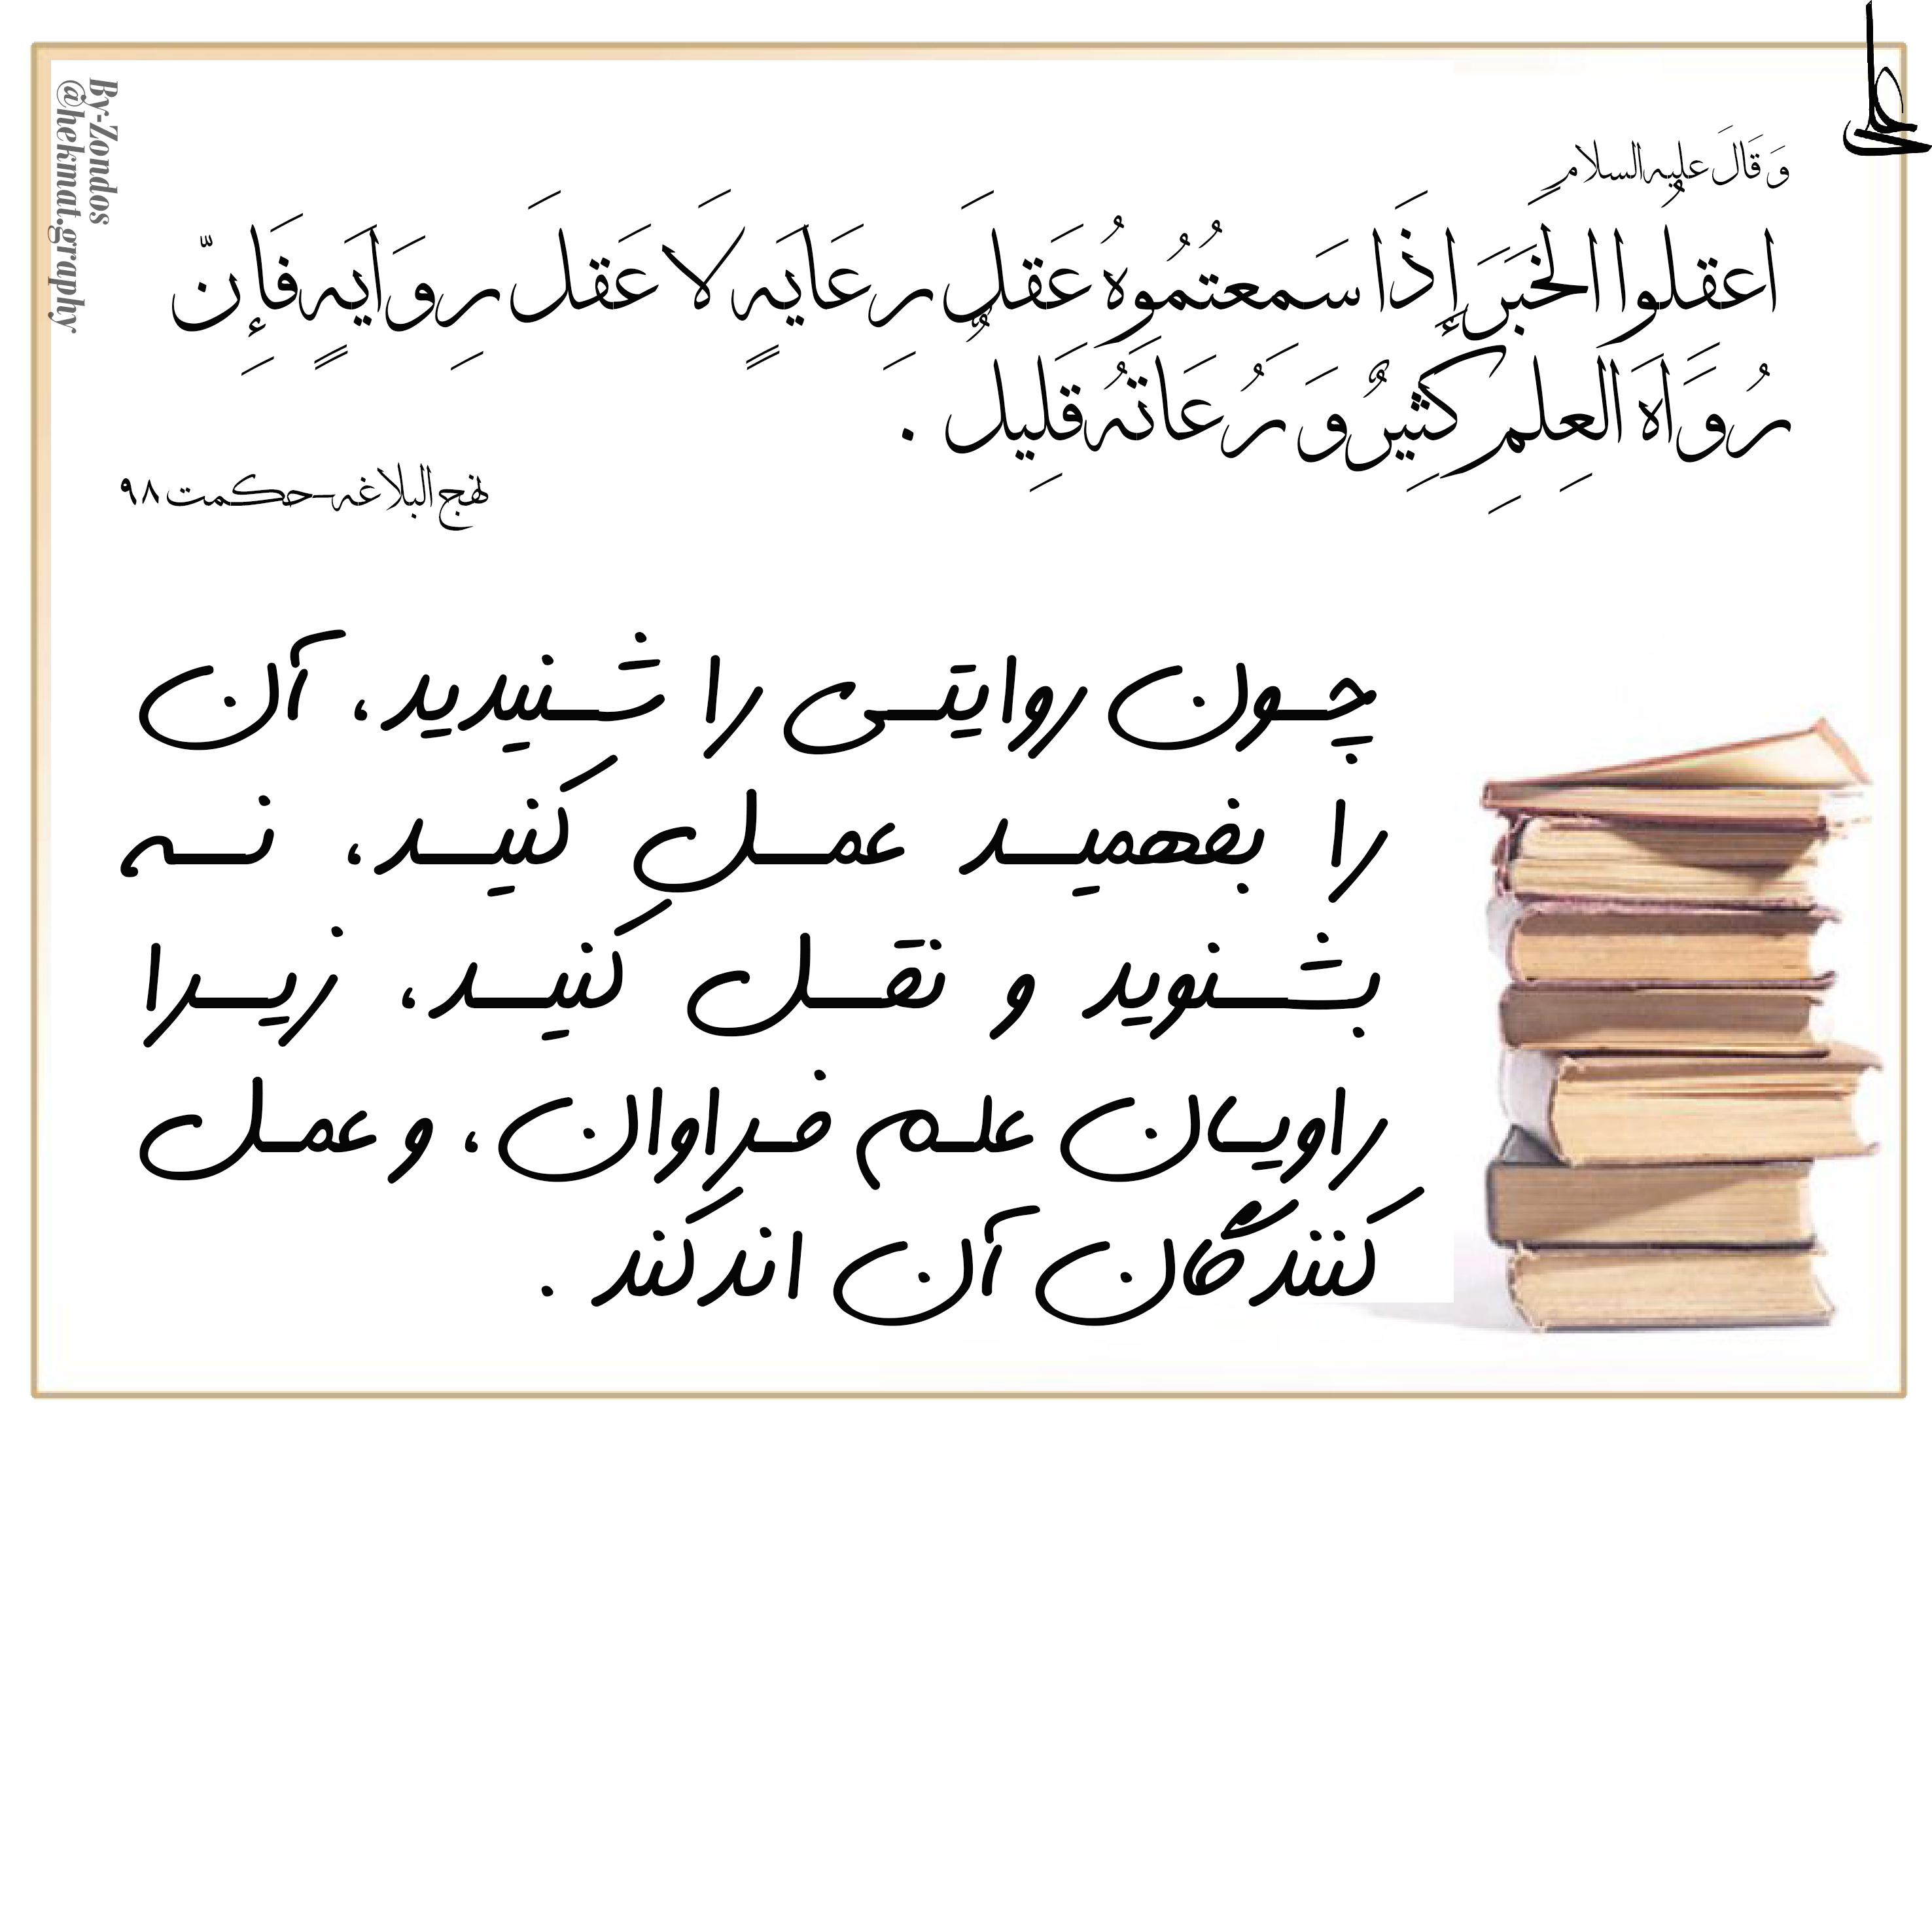 علی
وَ قَالَ علیه السلام
اعقلُوا الخَبَرَ إِذَا سَمعتُمُوهُ عَقلَ رِعَایَهٍ لَا عَقلَ رِوَایَهٍ فَإِنّ
رُوَاَهَ العِلمِ کثِیرٌ وَ رُعَاتَهُ قَلِیلٌ .
نهج البلاغه - حکمت ۹۸
چون روایتی را شنیدید، آن
را بفهمید عمل کنید، نه
بشنوید و نقل کنید، زیرا
راویان علم فراوان، و عمل
کنندگان آن اندکند .
By-Zondos
@hekmat.graphy